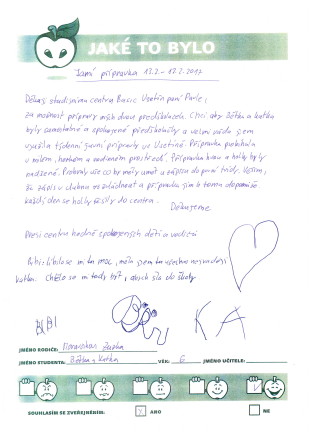 JAKÉ TO BYLO
Jarní přípravka 13.2. - 17.2.2017
Děkuji studijnímu centru Basic Vsetín paní Pavle,
za možnost přípravy mých dvou předškolaček. Chci, aby Bětka a Katka
byly samostatné a spokojené předškolačky a velmi ráda jsem
využila týdenní jarní přípravky ve Vsetíně. Přípravka probíhala
v milém, hezkém a rodinném prostředí. Přípravka hravá a holky byly
nadšené. Probraly vše co by měly umět u zápisu do první třídy. Věřím,
že zápis v dubnu zvládneme a přípravka jim k tomu dopomůže
každý den se holky těšily do centra.
Děkujeme.
Přeji centru hodně spokojených dětí a rodičů.
líbilo se mi tu moc,
Katka. Chtělo se mi tady být, abych šla do školy.
KA
JMÉNO RODIČE: Zuzka
JMÉNO STUDENTA: Bětka a Katka VĚK: 6 JMÉNO UČITELE:
SOUHLASÍM SE ZVEŘEJNĚNÍM: X ANO NE